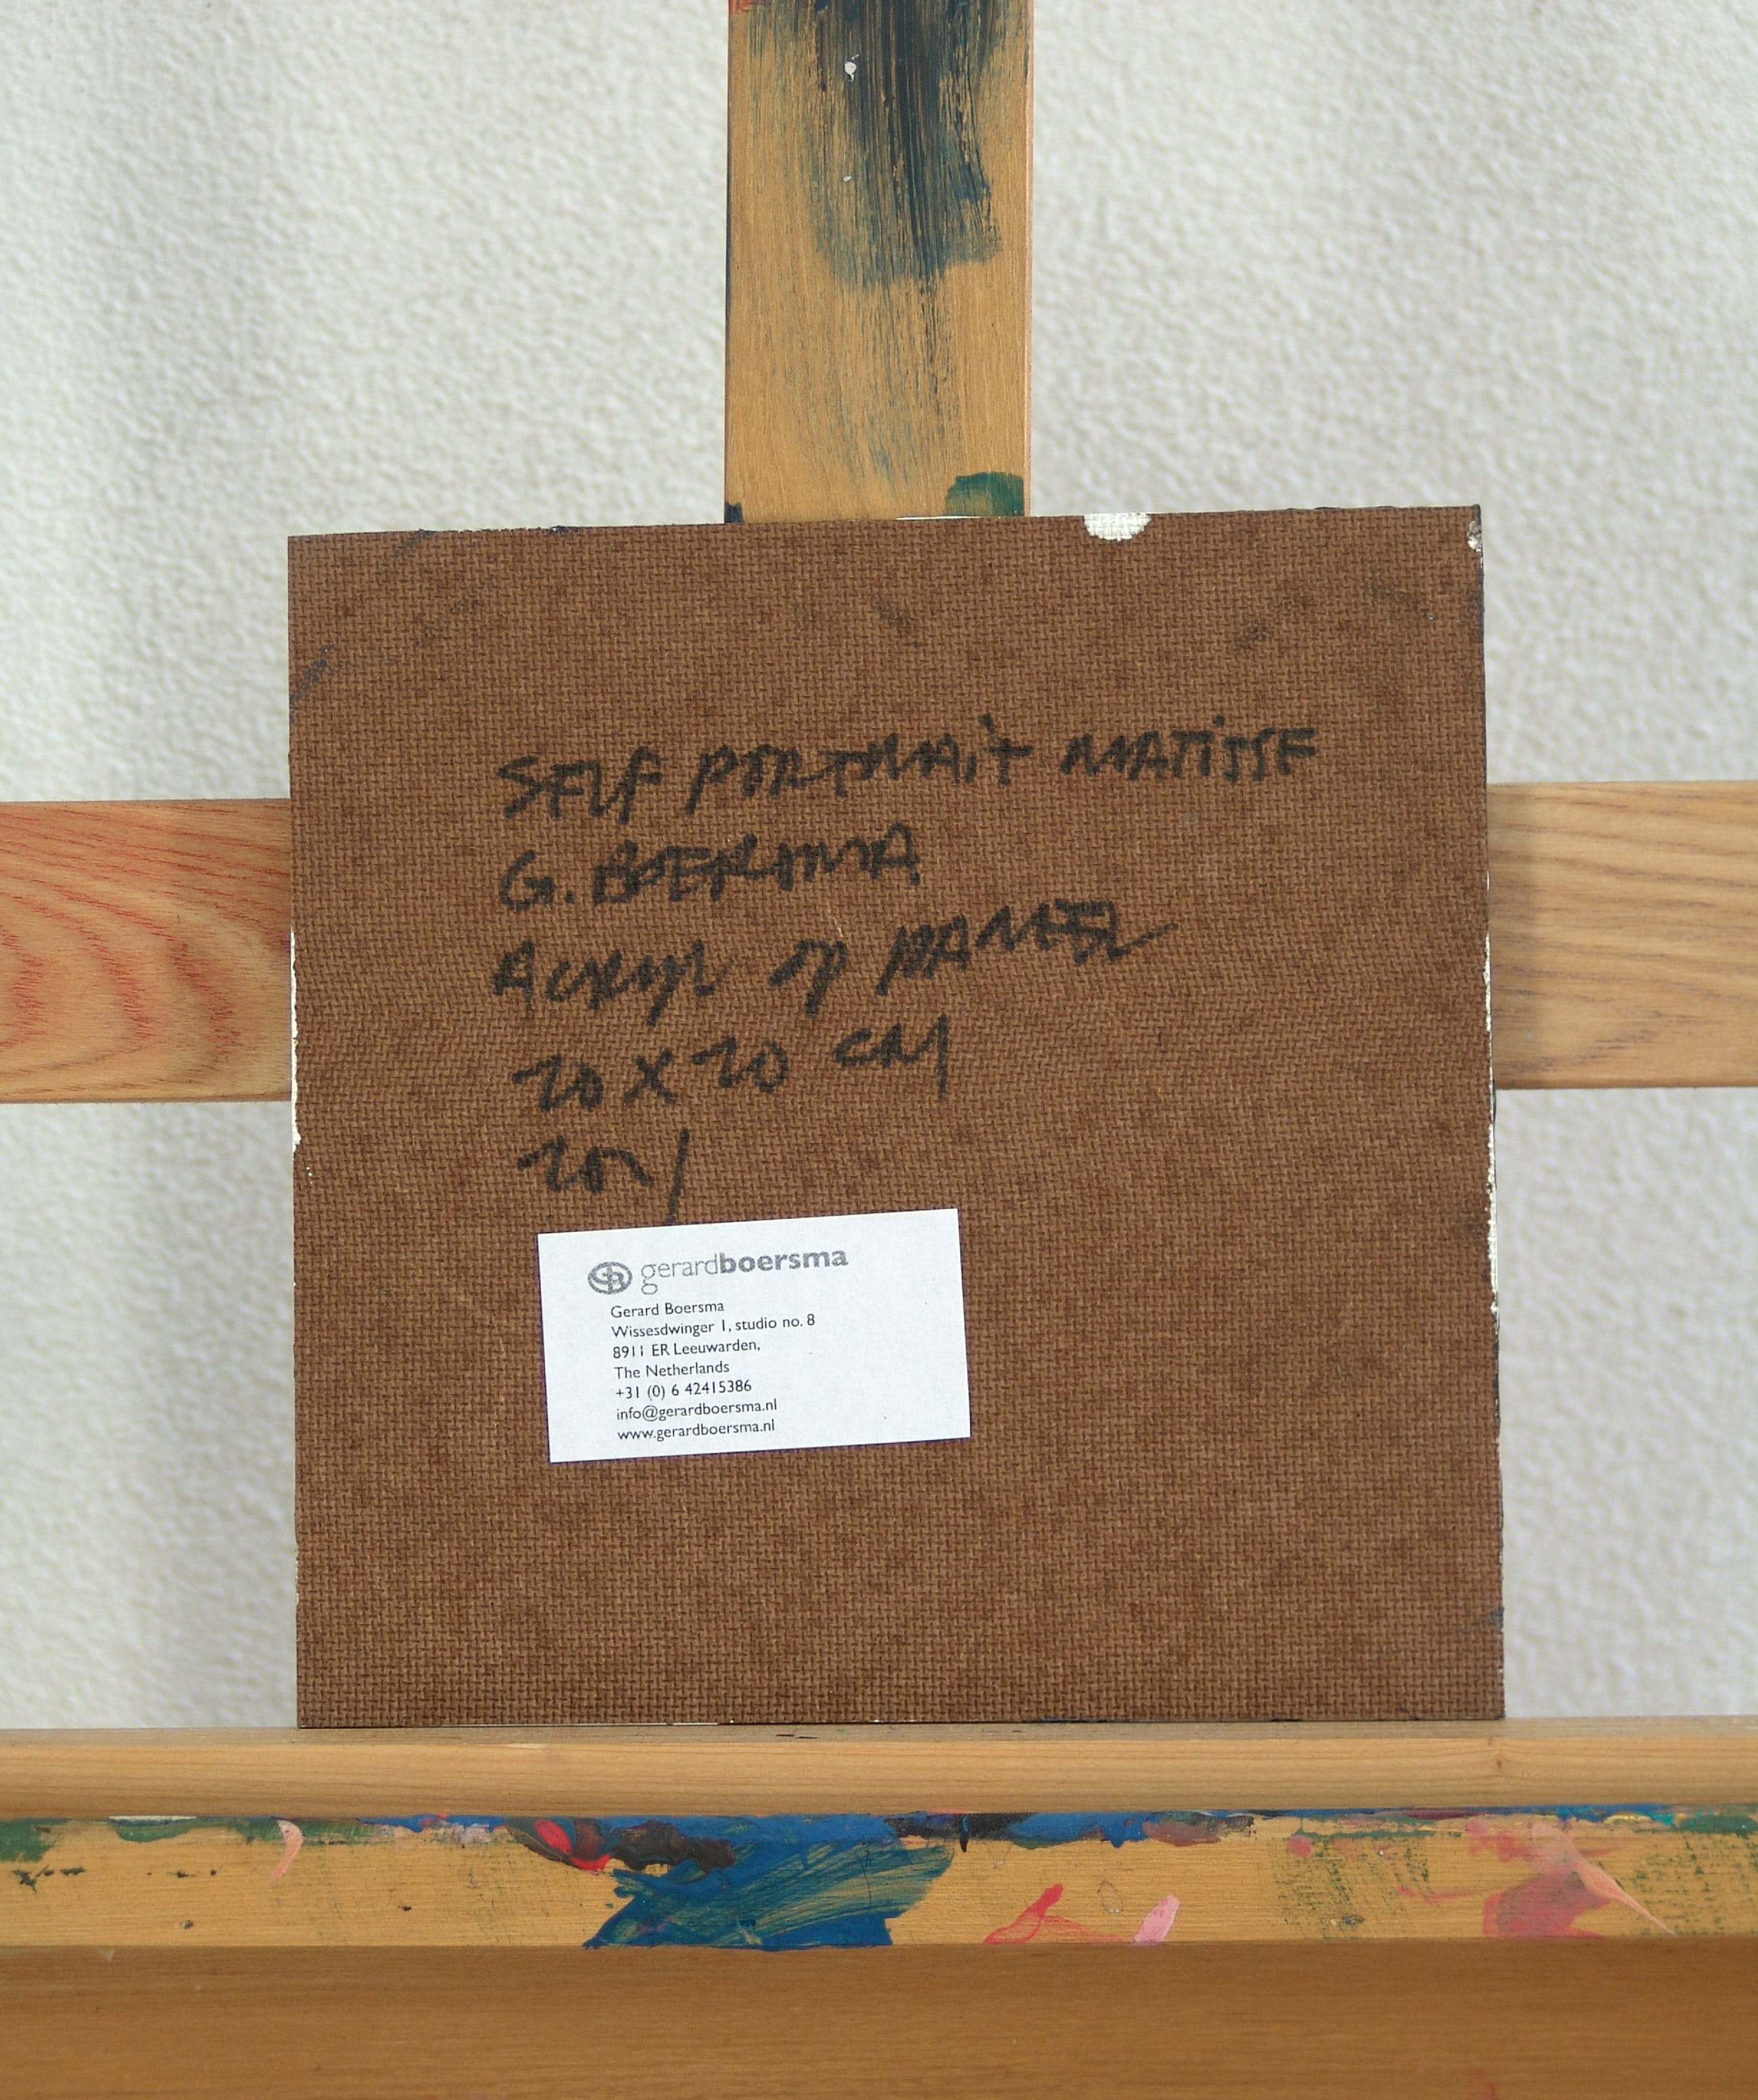 SELF PORTRAIT MATISSE
G. BOERSMA
ACRYL OP PANEEL
20 X 20 CM
2021
gerardboersma
Gerard Boersma
Wissesdwinger 1, studio no. 8
8911 ER Leeuwarden,
The Netherlands
+31 (0) 6 42415386
info@gerardboersma.nl
www.gerardboersma.nl